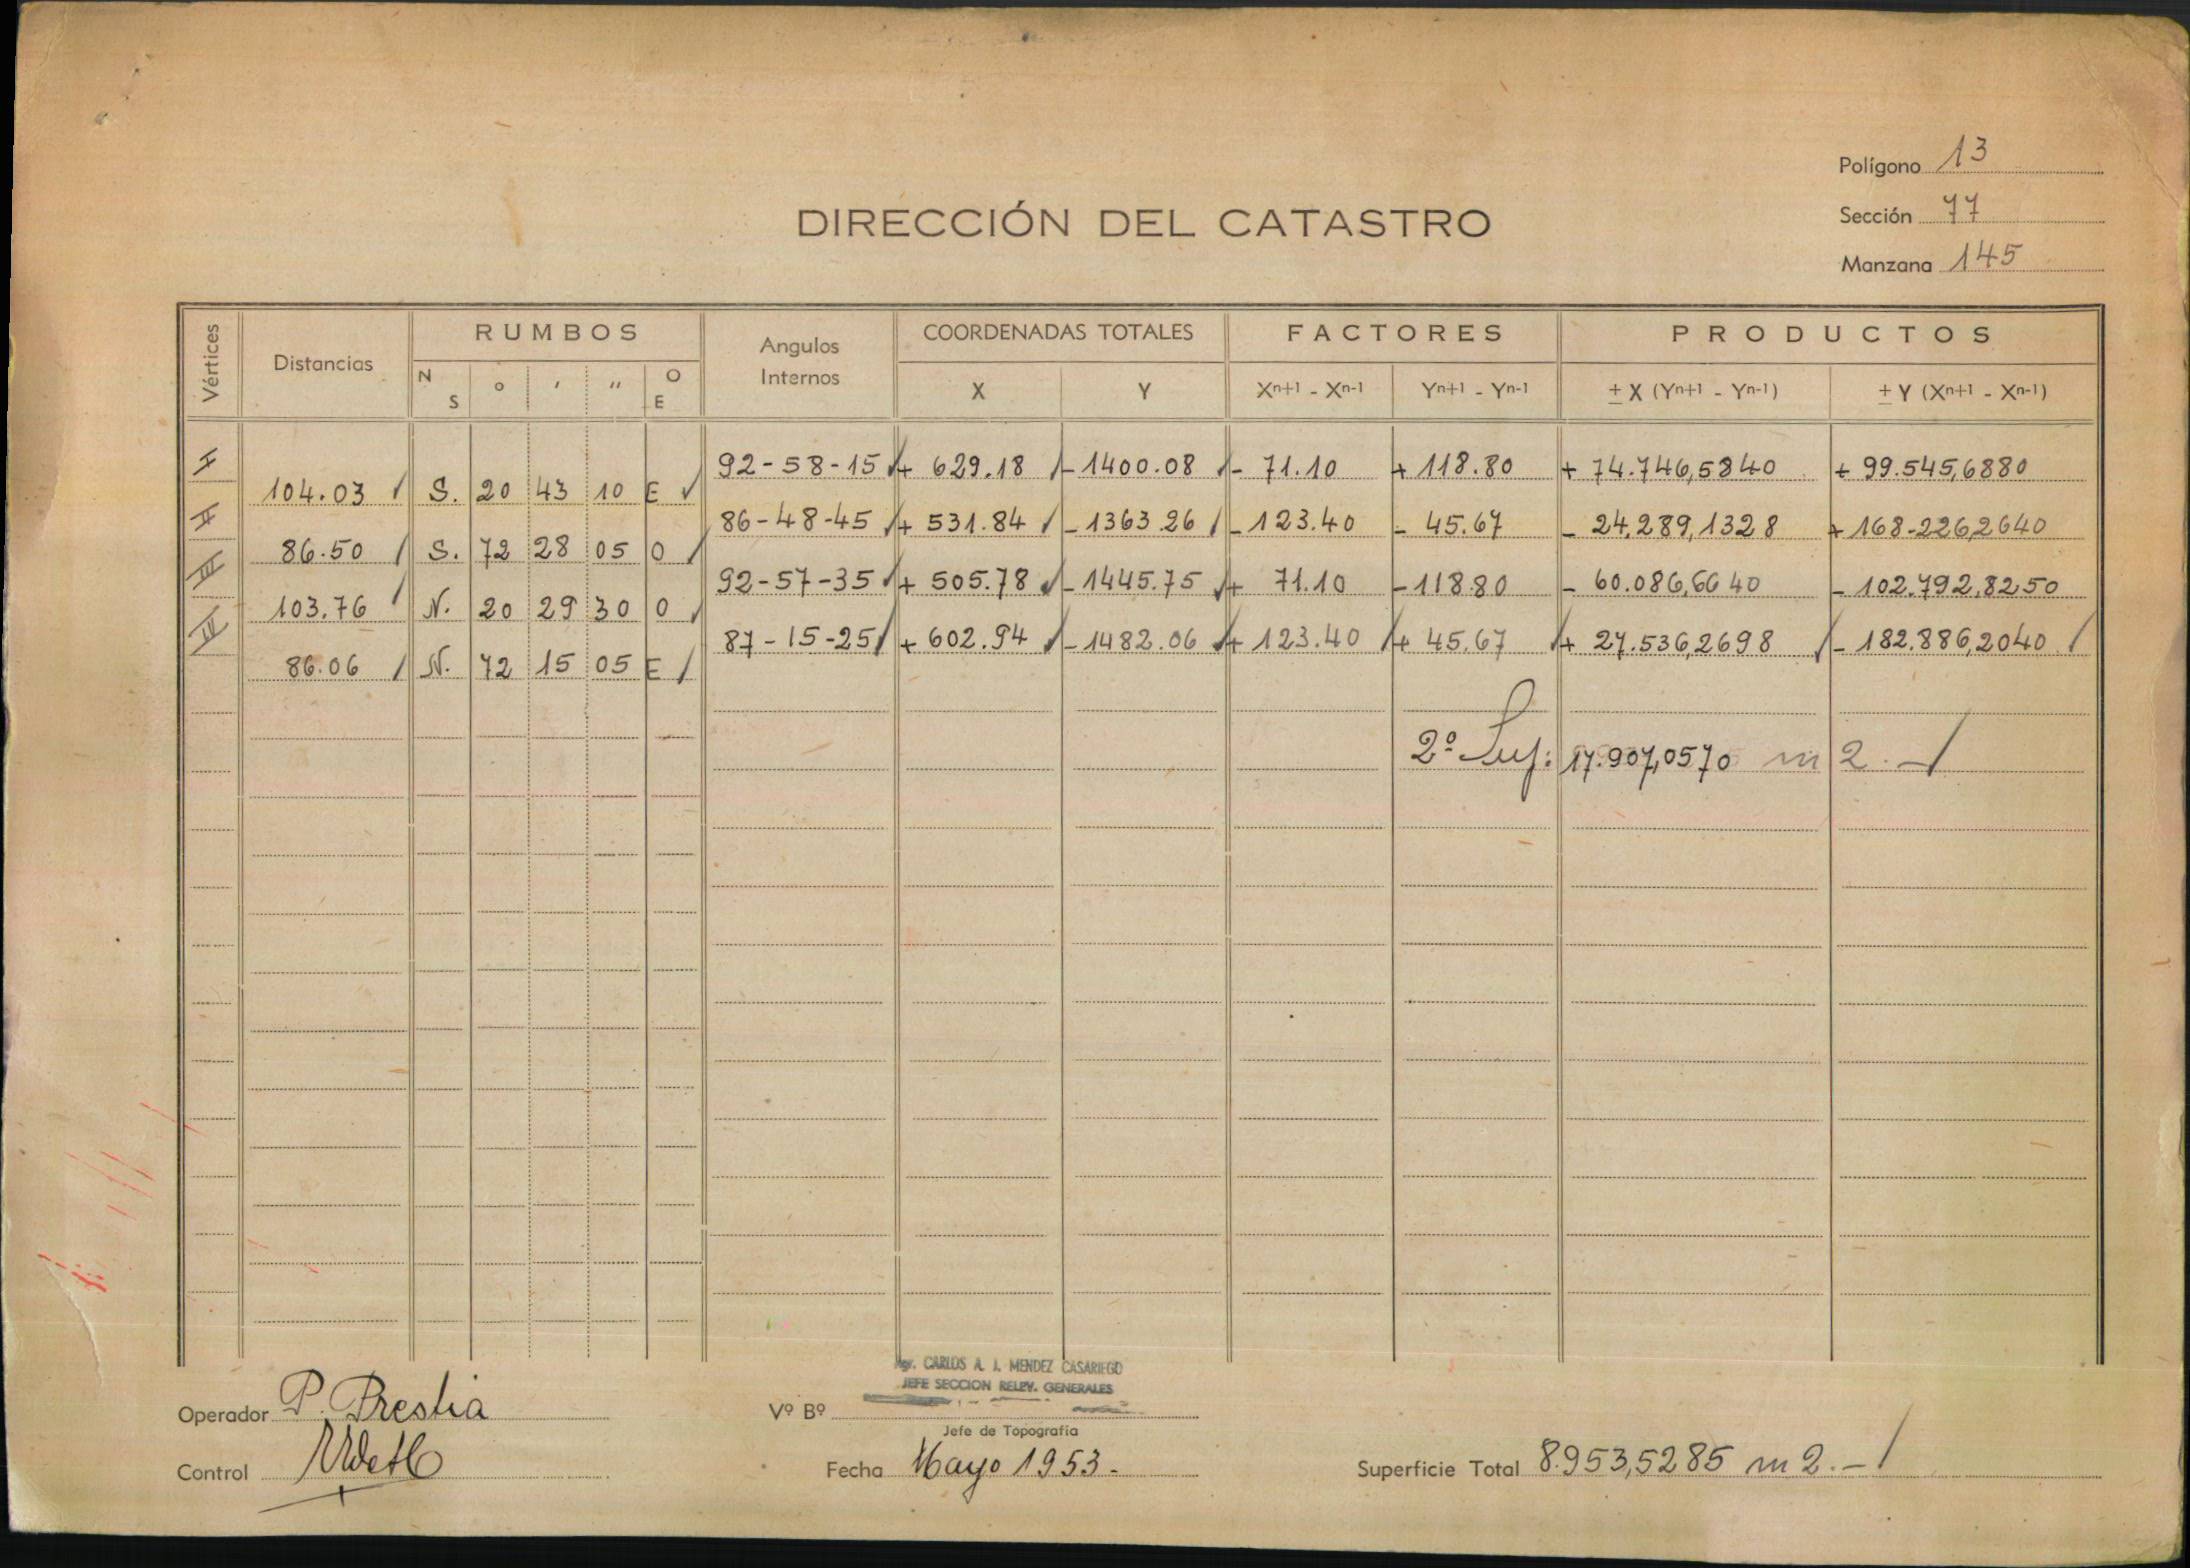 Polígono 13
Sección 77
Manzana 145
DIRECCIÓN DEL CATASTRO
Vértices Distancias RUMBOS Angulos Internos COORDENADAS TOTALES FACTORES PRODUCTOS
N S ° ' " O E X Y Xn+1 - Xn-1 Yn+1 - Yn-1 ± X (Yn+1 - Yn-1) ± Y (Xn+1 - Xn-1)
I 92-58-15 + 629.18 - 1400.08 - 71.10 + 118.80 + 74.746,5840 + 99.545,6880
104.03 S. 20 43 10 E
II 86-48-45 + 531.84 - 1363.26 - 123.40 - 45.67 - 24.289,1328 + 168-226,2640
86.50 S. 72 28 05 O
III 92-57-35 + 505.78 - 1445.75 + 71.10 - 118.80 - 60.086,6640 - 102.792,8250
103.76 N. 20 29 30 O
IV 87-15-25 + 602.94 - 1482.06 + 123.40 + 45.67 + 27.536,2698 - 182.886,2040
86.06 N. 72 15 05 E
2º Sup: 17.907,0570 m2.-
Operador P. Prestia
Control
Agr. CARLOS A. J. MENDEZ CASARIEGO
JEFE SECCION RELEV. GENERALES
Vº Bº
Jefe de Topografía
Fecha Mayo 1953.-
Superficie Total 8.953,5285 m2.-